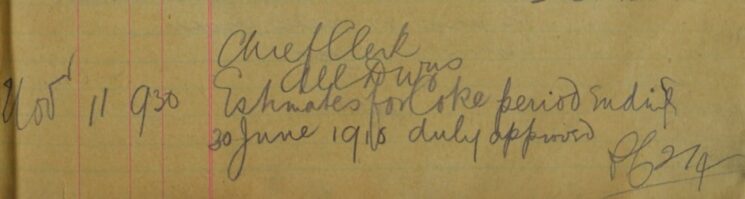 Chief Clerk
All Divns
Novr 11 930 Estimates for Coke period ending
30 June 1916 duly approved